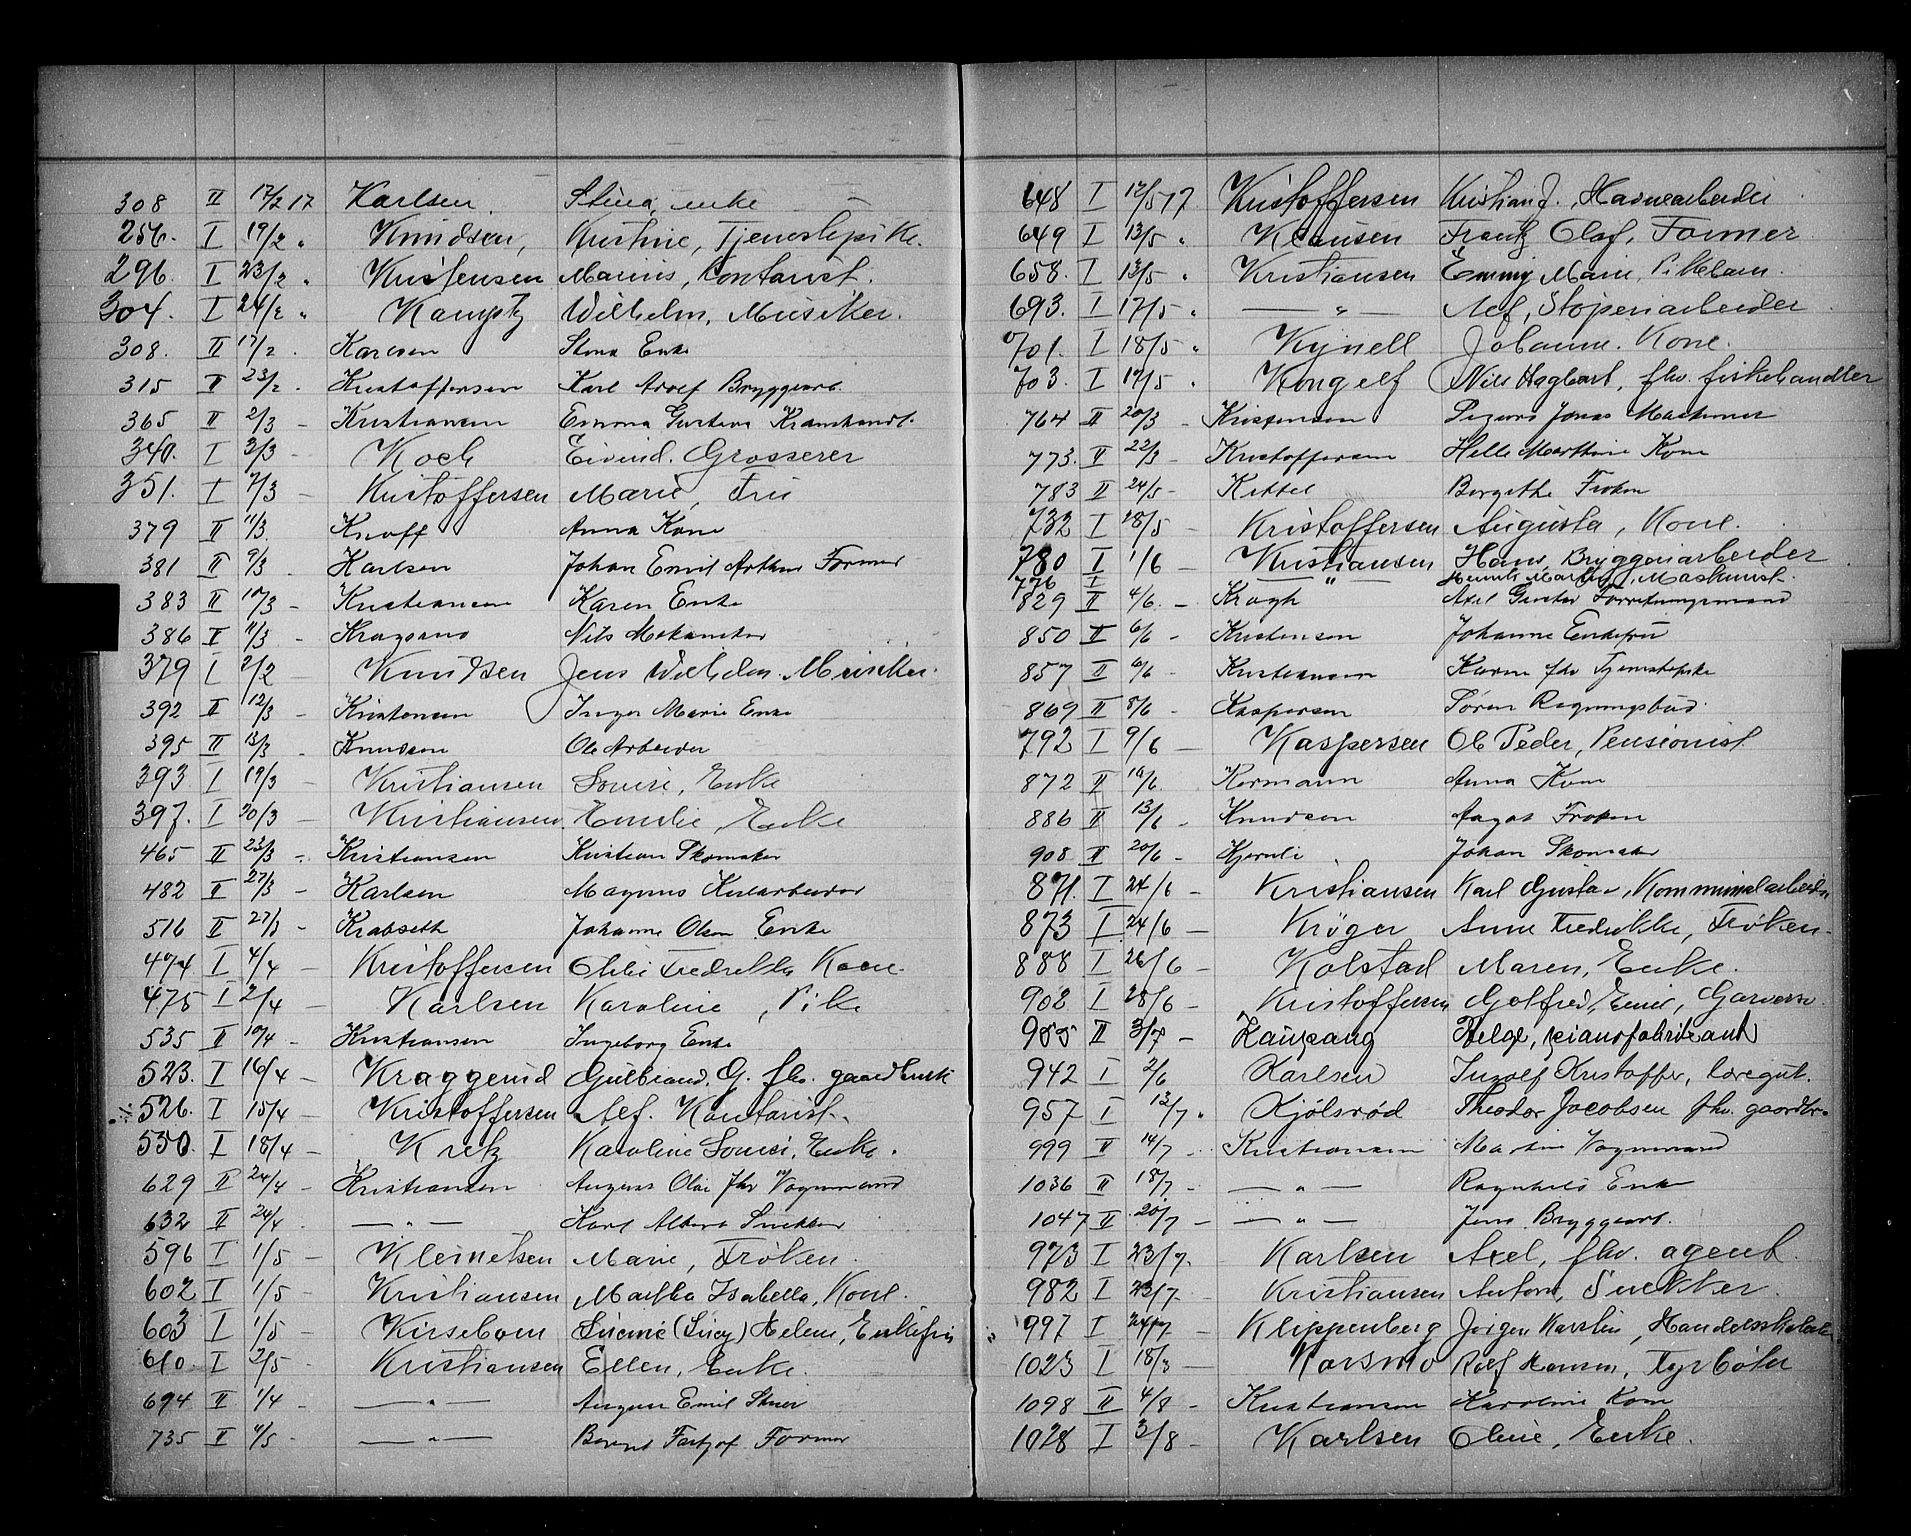 308 II 17/2 17 Karlsen. Stina, enke
256. I 19/2 " Knudsen, Kristine, Tjenestepike.
296. I 23/2 " Kristensen Marius, Kontorist.
304. I 24/2 " Kamptz Wilhelm, Musiker.
308. II 17/2 Karlsen Stina Enke
315 II 23/2 Kristoffersen Karl Adolf Bryggearb.
365 II 2/3 - Kristiansen Emma Gustava Kramhandl.
340. I 3/3 - Koch Eivind. Grosserer
351. I 7/3 - Kristoffersen Marie, Fru
379 II 11/3 Knoff Anna Kone
381 II 9/3 - Karlsen Johan Emil Arthur Former
383 II 10/3 - Kristiansen Karen Enke
386 II 11/3 - Nils Mekaniker
379 I 2/2 Knudsen Jens Wilhelm. Musiker.
392 II 12/3 - Kristensen Inger Marie Enke
395 II 13/3 - Knudsen Ole Arbeider
393 I 19/3 - Kristiansen Louise, Enke
397. I 20/3 - Kristiansen. Emelie, Enke
465 II 23/3 - Kristiansen Kristian Skomaker
482 II 27/3 - Karlsen Magnus
516 II 27/3 - Krabseth Johanne Olsen Enke
474 I 4/4 - Kristoffersen Fredrikke Kone.
475 I 2/4 - Karlsen Karoline, Pike
535 II 10/4 - Kristiansen Ingeborg Enke
523. I 16/4 - Kraggerud Gulbrand. G. fhv. gaardbruk
526. I 15/4 - Kristoffersen Alf. Kontorist.
550. I 18/4 - Kretz Karoline Louise, Enke.
629 II 24/4 - Kristiansen August Olai fhv Vognmand
632 II 24/4 — " — Karl Albert Snekker
596 I 1/5 - Klemetsen Marie, Frøken.
602 I 1/5 - Kristiansen Martha Isabella, Kone.
603 I 1/5 - Kirsebom (Lucy) Helene, Enkefru
610. I 2/5 - Kristiansen Ellen, Enke.
694 II 1/4 - — " — August Emil
735 II 4/5 - — " — Berent Fritjof Former
648 I 12/5 17 Kristoffersen Kristian J., Havnearbeider
649 I 13/5 " Klausen Frantz Olaf, Former
658. I 13/5 " Kristiansen Emmy Marie, Pikebarn.
693. I 17/5 " — " — Alf, Støperiarbeider
701. I 18/5 " Kynell Johanne. Kone.
703. I 17/5 " Kongelf Nils Hagbart, fhv. fiskehandler
764 II 20/3 - Kristensen Jonas Maskinist
773. II 22/3 - Kristoffersen Marthine Kone
783 II 24/5 - Kittel Bergithe Frøken
732 I 28/5 - Kristoffersen Augusta, Kone.
780 I 1/6 - Kristiansen Hans, Bryggeriarbeider
776 I — " — Henrik Martin, Maskinist.
829 II 4/6. - Krogh Axel Gustav Forretningsmand
850 II 6/6 - Kristensen Johanne Enkefru
857 II 6/6 - Kristiansen Karen fhv Tjenestepike
869 II 8/6 - Kaspersen Søren Regningsbud
792 I 9/6 - Kaspersen Ole Peder, Pensionist
872 II 10/6. Kormann Anna Kone
886 II 13/6 - Knudsen Aagot Frøken
908 II 20/6 - Kjernli Johan Skomaker
871. I 24/6 - Kristiansen Karl Gustav, Kommunalarbeider
873 I 24/6 - Krøger Anne Fredrikke, Frøken.
888 I 26/6 - Kolstad Maren, Enke.
902 I 28/6 - Kristoffersen Gotfred, Emil, Garversv.
955 II 3/7 - Kaupang Helge, pianofabrikant
942 I 2/6 Karlsen Ingolf Kristoffer, læregut.
957 I 12/7 " Kjølsrød Theodor Jacobsen fhv. gaardbr.
999 II 14/7 - Kristiansen Martin Vognmand
1036 II 18/7 - — " — Ragnhild Enke
1047 II 20/7 - — " — Jens Bryggearb.
973 I 23/7. Karlsen Axel, fhv. agent.
982 I 23/7 - Kristiansen Anton, Snekker.
997 I 24/7 - Klippenberg Jørgen Karstin,
1023 I 18/3 - Korsmo Rolf Hansen, Fyrbøter
1098 II 4/8 - Kristiansen Karoline Kone
1028 I 3/8 - Karlsen Oline, Enke.